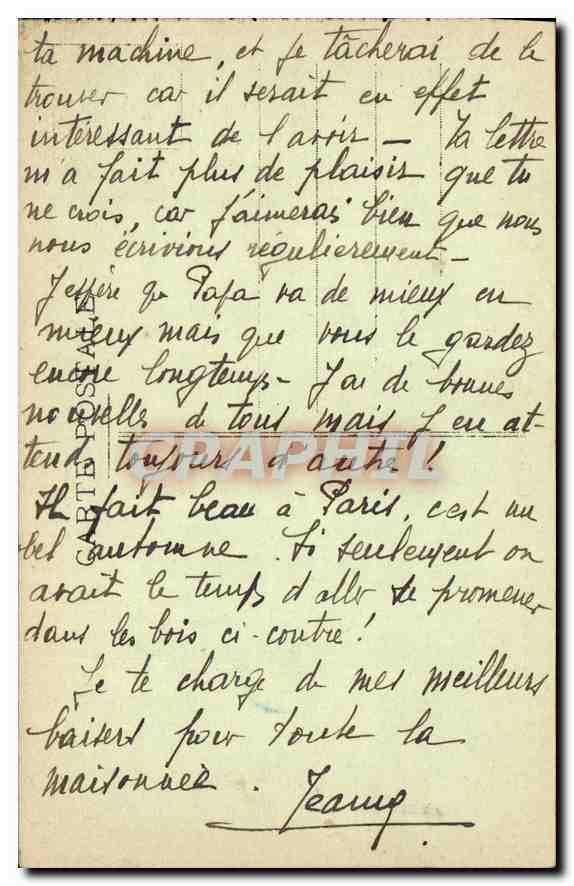 ta machine, et je tâcherai de le
trouver car il serait en effet
intéressant de l'avoir - Ta lettre
m'a fait plus de plaisir que tu
ne crois, car j'aimerais bien que nous
nous écrivions régulièrement -
J'espère que Papa va de mieux en
mieux mais que vous le gardez
encore longtemps - J'ai de bonnes
nouvelles de tous mais j'en at-
tend toujours d'autres !
Il fait beau à Paris, c'est un
bel automne. Si seulement on
avait le temps d'aller se promener
dans les bois ci-contre !
Je te charge de mes meilleurs
baisers pour toute la
maisonnée.
CARTE POSTALE
CPAPHIL